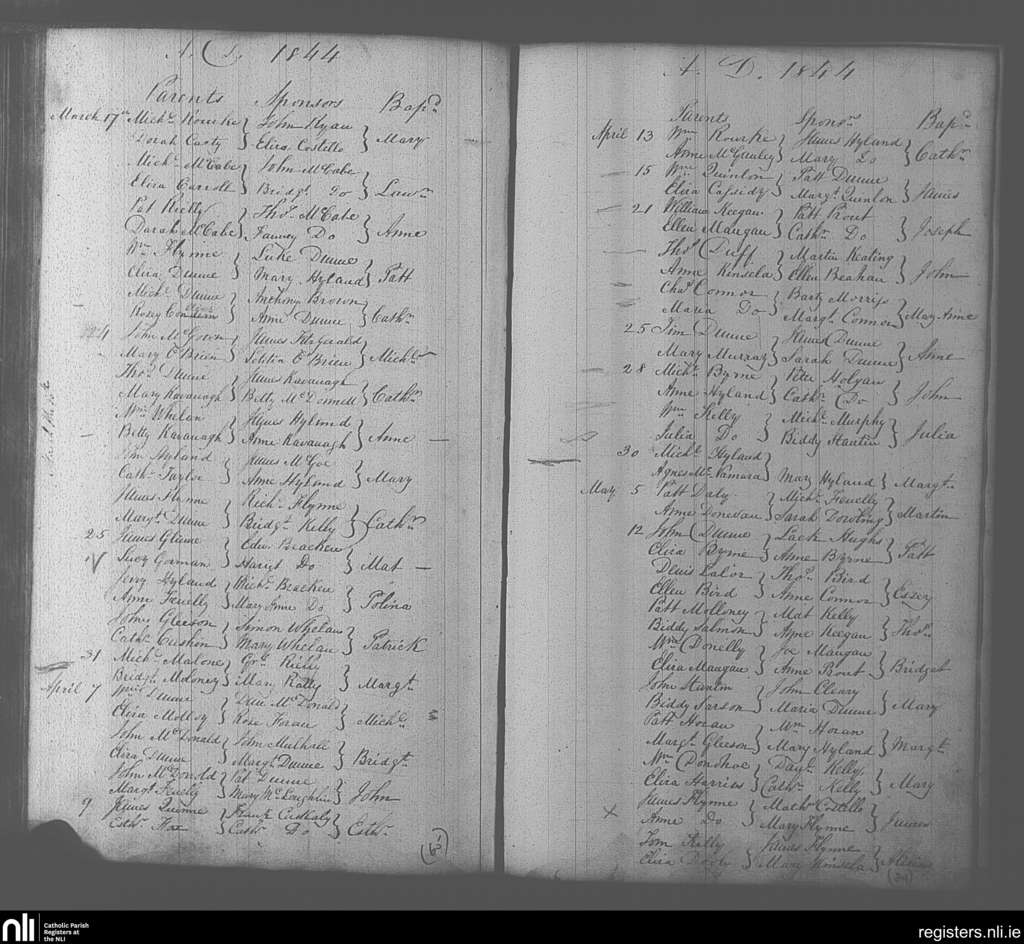 A. D. 1844
Parents Sponsors Bapd.
March 17th Michl. Rourke } John Ryan } Mary
Dorah Casty } Eliza Costello
Michl. McCabe } John McCabe } Lawr.
Eliza Carroll } Bridgt. Do
Pat Kielly } Thos. McCabe } Anne
Darah McCabe } Fanny Do
Wm. Flynne } Luke Dunne } Patt
Eliza Dunne } Mary Hyland
Michl. Dunne } Anthony Brown } Cathn.
Rosey } Anne Dunne
24 John McGown } James Fitzgerald } Michl.
Mary O'Brien } Letitia O'Brien
Thos. Dunne } James Kavanagh } Cathn.
Mary Kavanagh } Betty McDonnell
Wm. Whelan } James Hyland } Anne —
Betty Kavanagh } Anne Kavanagh
Jim Hyland } James McGee } Mary
Cath. Taylor } Anne Hyland
James Flynne } Richd. Flynne } Cathn.
Margt. Dunne } Bridgt. Kelly
25 James Glynne } Edw. Bracken } Mat —
Lucy Gorman } Hariet Do
Jerry Hyland } Michl. Bracken } Polina
Anne Fenelly } Mary Anne Do
John Gleeson } Simon Whelan } Patrick
Cath. Cushion } Mary Whelan
31 Michl. Malone } Kiely } Margt.
Bridgt. Moloney } Mary Kelly
April 7 Dunne } McDonald } Michl.
Eliza Molloy } Rose Horan
John McDonald } John Mulhall } Bridgt.
Eliza Dunne } Margt. Dunne
John McDonald } Pat Dunne } John
Margt. Fenely } Mary McLoughlin
9 James Quinne } Frank } Cath.
Cath. } Cath. Do
A. D. 1844
Parents Sponsrs. Bapd.
April 13 Wm Rourke } James Hyland } Cathn.
Anne McGinley } Mary Do
15 Wm Quinlon } Patt Dunne } James
Eliza Cassidy } Margt. Quinlon
21 William Keegan } Patt Prout } Joseph
Ellen Mangan } Cathn. Do
Thos. Duff } Martin Keating } John
Anne Kinsela } Ellen Beahan
Chas. Connor } Barty Morriss } Mary Anne
Maria Do } Margt. Connor
25 Jim Dunne } James Dunne } Anne
Mary Murray } Sarah Dunne
28 Michl. Byrne } Peter Holgan } John
Anne Hyland } Cath. Do
Wm Kelly } Michl. Murphy } Julia
Julia Do } Biddy
30 Michl. Hyland } Mary Hyland } Margt.
Agnes McNamara
May 5 Patt Daly } Michl. Fenelly } Martin
Anne Donevan } Sarah Dowling
12 John Dunne } Lack Hughs } Patt
Eliza Byrne } Anne Byrne
Denis Lalor } Thos. Bird } Essey
Ellen Bird } Anne Connor
Patt Molloney } Mat Kelly } Thos.
Biddy Salmon } Anne Keegan
Wm Donelly } Joe Mangan } Bridget
Eliza Mangan } Anne Prout
John } John Cleary } Mary
Biddy Parson } Maria Dunne
Patt Horan } Wm Horan } Margt.
Margt. Gleeson } Mary Hyland
Wm Donohoe } Kelly } Mary
Eliza Harriss } Cathn. Kelly
James Flynne } Mathw. Costello } James
X Anne Do } Mary Flynne
Tom Kelly } James Flynne
Eliza } Mary Kinsela
nli
Catholic Parish
Registers at
the NLI
registers.nli.ie